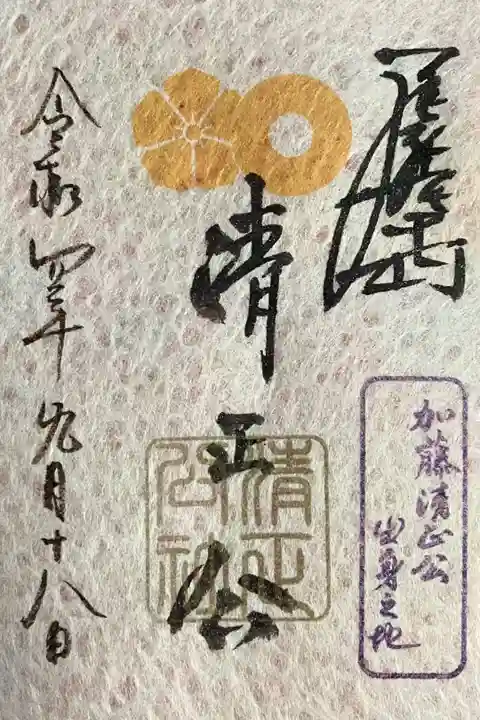 加藤清正公
出身之地
清正公
清正
公社
令和四年九月十八日